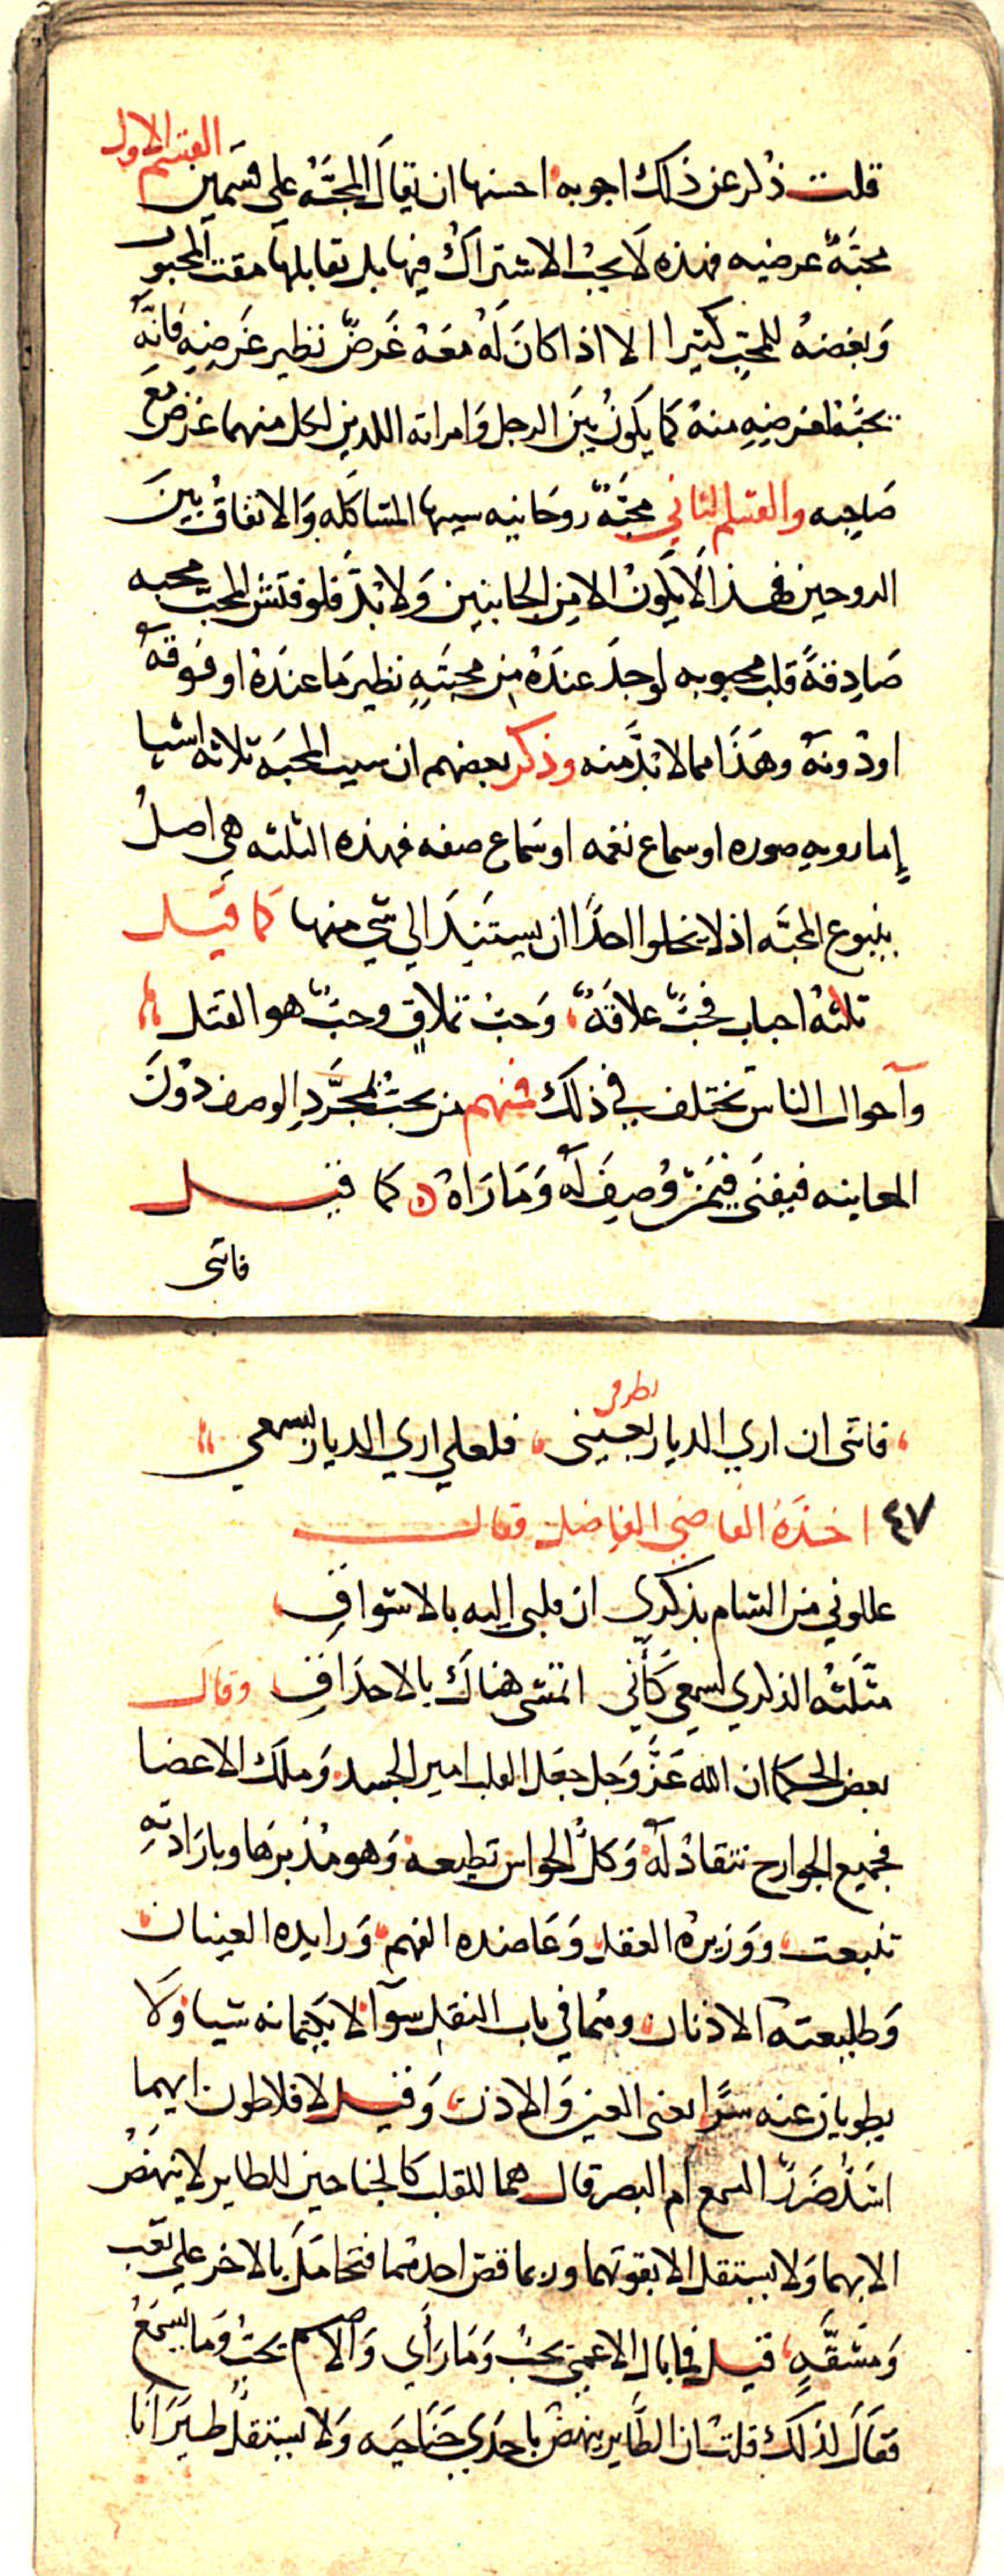 القسم الاول
قلت ذكر عن ذلك اجوبه احسنها ان يقال المحبَّه على قسمين
محبَّة عرضيه فهذه لا يجبُ الاشتراك فيها بل تقابلها مقت المحبوب
وَبغضهُ للمحبّ كثيرا الا اذا كانَ لَهُ مَعَهُ غَرضٌ نظير غَرضِهِ فانَّهُ
يحبّهُ لغرضِهِ منهُ كما يكونُ بيَن الرجل وَامراته اللذين لكل منهما غرَض مَع
صَاحِبه والقسم الثاني محَبَّةٌ روحَانيه سببها المشاكله وَالاتفاقُ بَينَ
الروحين فهذا لَا يَكونُ الا مِن الجانبين وَلا بُدَّ فلو فتشَ المحبّ محبه
صَادِقةً قلبَ محبوبه لوجدَ عندَهُ مِن محبَتِهِ نظير مَا عندَهُ او فوقهُ
او دُونهُ وهَذا مما لا بُدَّ منه وذكر بعضهم ان سبب المحبَه ثلاثه اشيا
إما رويه صوره او سماع نغمه او سَماع صفه فهذه الثلثه هي اصلُ
ينبوع المحبَّه اذ لا يخلوا احدًا ان يستَنِدَ الي شي منها كما قيل
ثلثهُ احباب فحبٌّ علاقَةٌ وَحبٌ تملاقٍ وحبٌّ هو القتل
وآحوال الناس تختلف في ذلك فمنهم من يحبُّ بمجَرَّدِ الوصف دُونَ
المعاينه فيفنَى فيمَنْ وُصِفَ لَهُ وَمَا رَاهُ كما قيل
فاتنى
فاتنى ان ارى الديار بعينى فلعلي اري الديار بسمعي
بطرفى
٤٧ اخذَهُ القاضي الفاضل فقال
عللوني من الشام بذكري ان قلبي اليه بالاشواقِ
مثلَتْه الذكري لسمعي كَأَنِّي اتمشى هناك بالاحدَاقِ وقال
بعض الحكما ان الله عَزَّ وَجل جعَل القلب امير الجسد وَملك الاعضا
فجميع الجوارح تنقادُ لَهُ وَكلّ الحواس تطيعه وَهو مُدَبّرهَا وبارَادتِهِ
تنبعث ووَزيرُه العقل وَعَاضده الفهم وَرايده العينان
وَطليعتهُ الاذنان وهُما في باب النقل سوآ لا يكتمانه شيا وَلَا
يطويان عنه سرًّا يعنى العين وَالاذن وَقيل لافلاطون ايهما
اشدُّ ضَررًا السمع أم البصر قال هما للقلب كالجناحين للطاير لا ينهَضُ
الا بهما وَلا يستقل الا بقوتهما وربما قصّ احدهما فتحَامَل بالاخر على تَعَب
وَمشقَّهٍ قيل فما بال الاعمى يحبُّ وَمَا رَأى وَالاصم يحبُّ وَما يسمَعُ
فقال لذلك قلت ان الطاير ينهضُ باحدَي جَنَاحَيه وَلا يستقلُّ طيَرَانًا